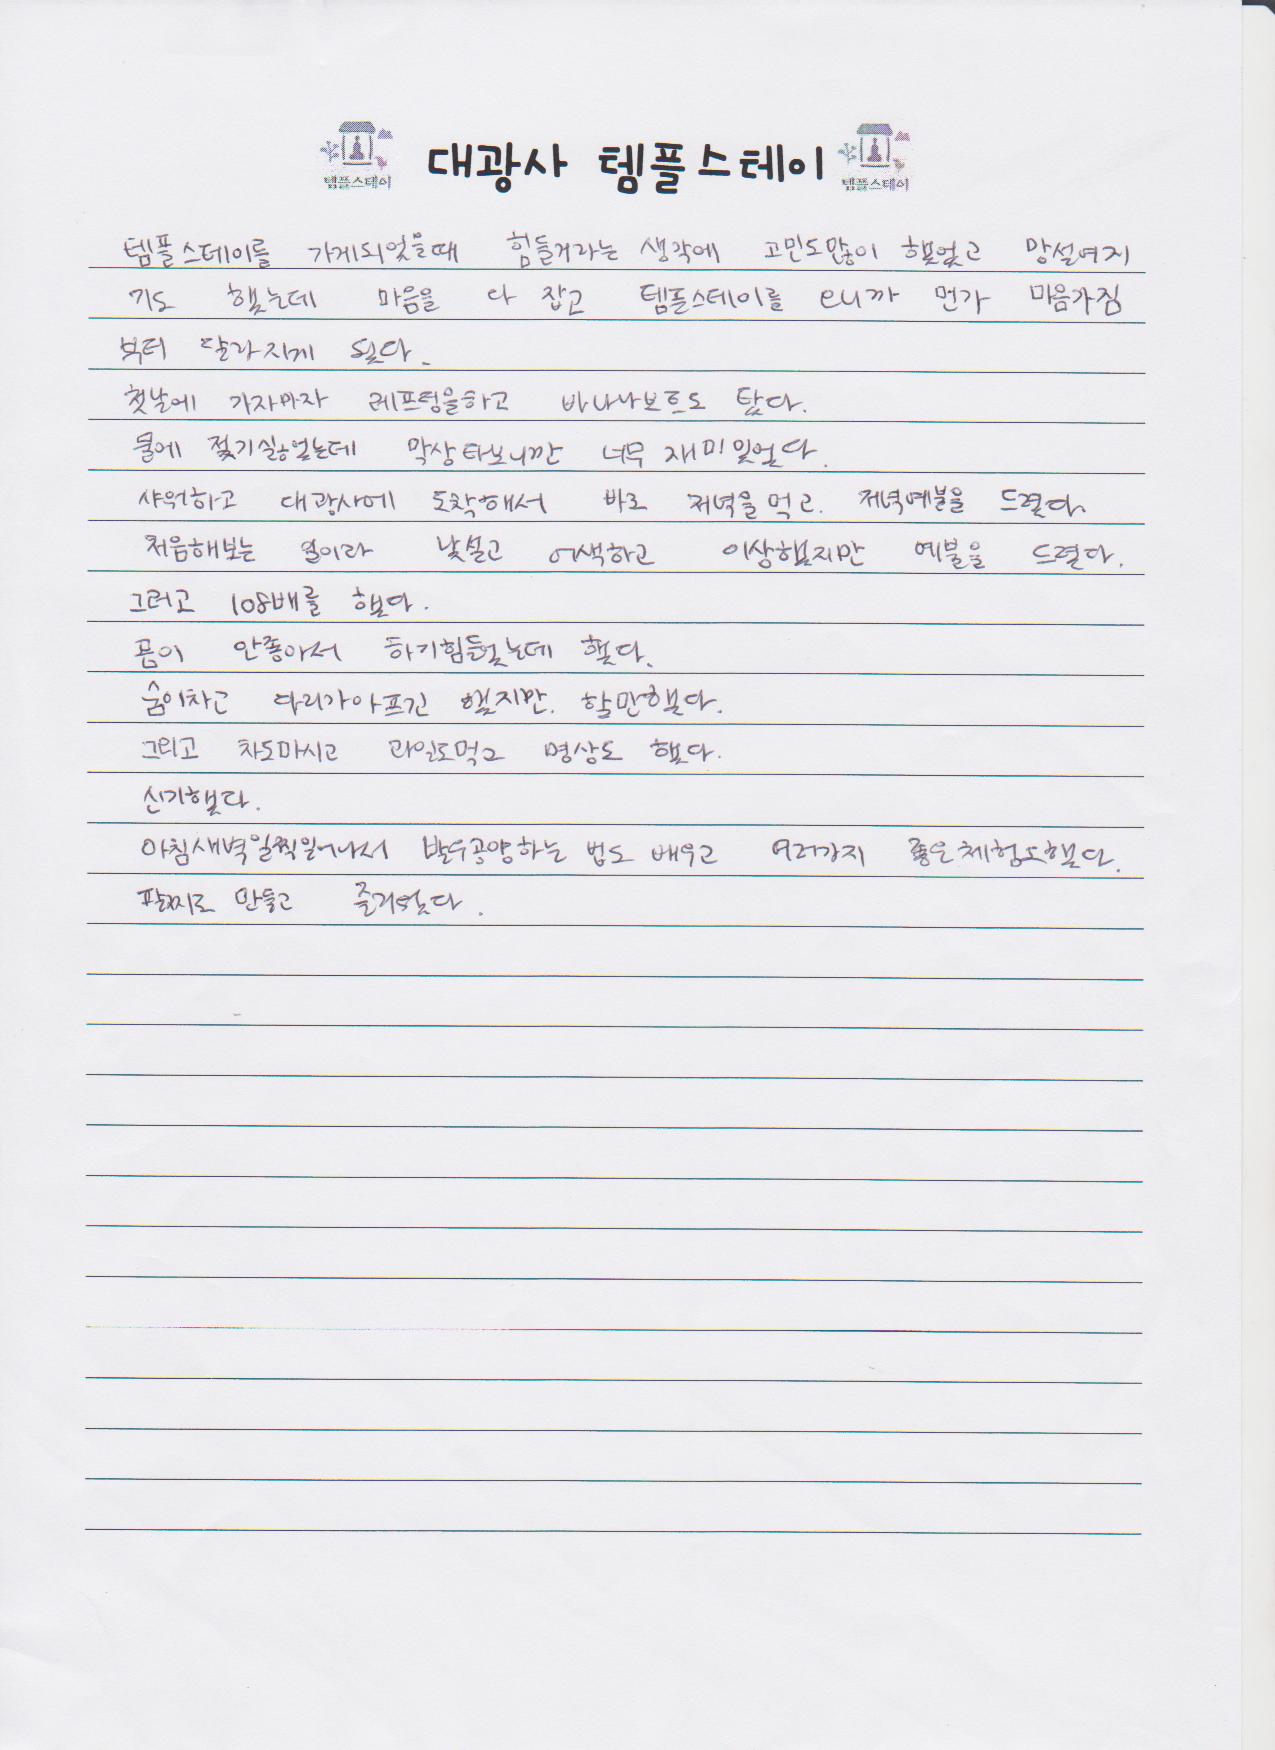 템플스테이 대광사 템플스테이 템플스테이
템플스테이를 가게되었을때 힘들거라는 생각에 고민도많이 했었고 망설여지
기도 했는데 마음을 다 잡고 템플스테이를 오니까 먼가 마음가짐
부터 달라지게 됬다.
첫날에 가자마자 레프팅을하고 바나나보트도 탔다.
물에 젖기싫었는데 막상타보니깐 너무 재미있었다.
샤워하고 대광사에 도착해서 바로 저녁을먹고. 저녁예불을 드렸다.
처음해보는 일이라 낯설고 어색하고 이상했지만 예불을 드렸다.
그러고 108배를 했다.
몸이 안좋아서 하기힘들었는데 했다.
숨이차고 다리가아프긴 했지만. 할만했다.
그리고 차도마시고 과일도먹고 명상도 했다.
신기했다.
아침새벽일찍일어나서 발우공양하는 법도 배우고 여러가지 좋은체험도했다.
팔찌도 만들고 즐거웠다.